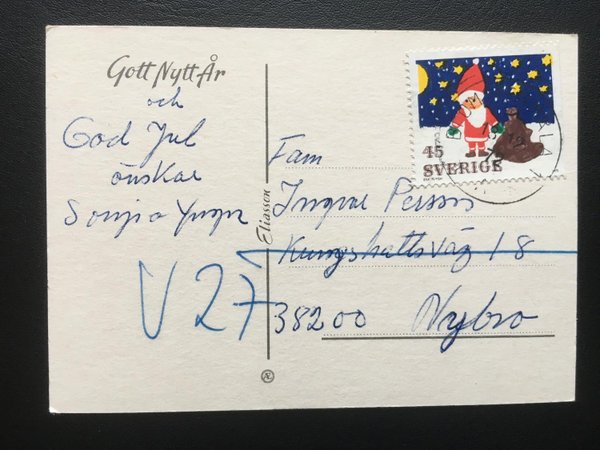 Gott Nytt År
och
God Jul
önskar
Sonja Yngve
V 27
Eliasson
Æ
45
SVERIGE
Fam
Ingvar Persson
Kungshallsväg 18
38200 Nybro